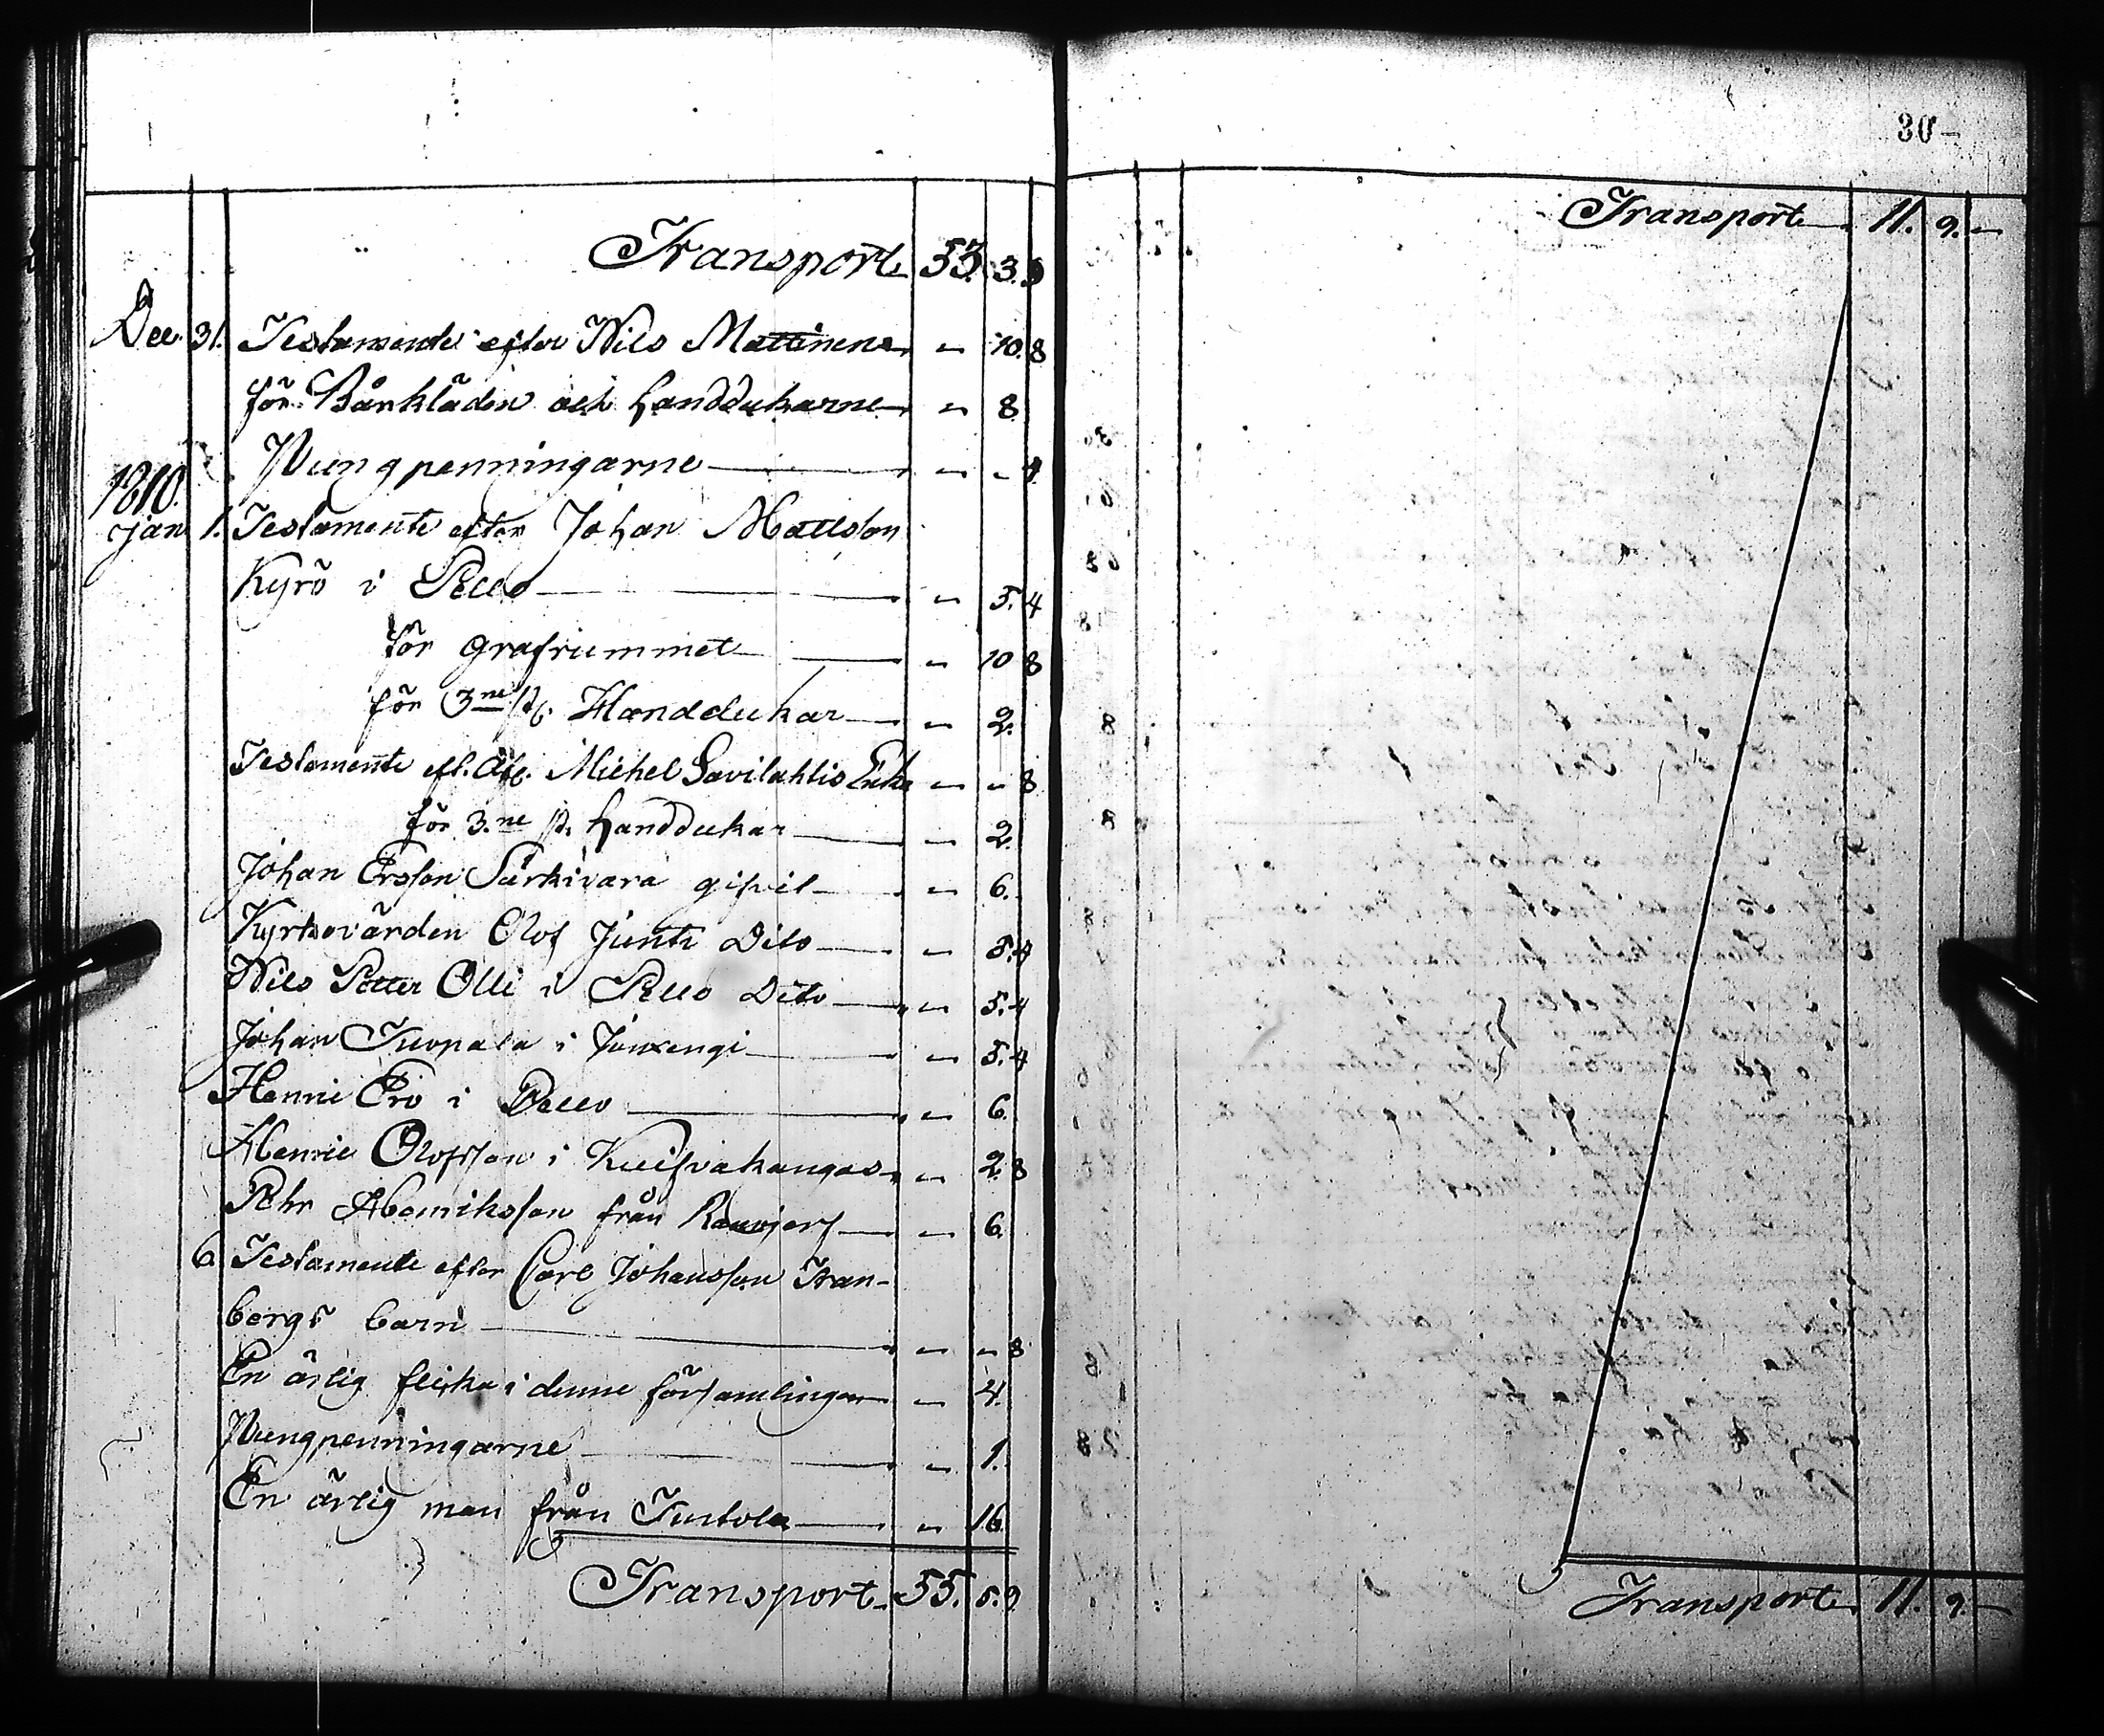 Transport 53. 3. 9
Dec. 31. Testamente efter Nils Mattinen " 10. 8
för Bårkläden och handdukarne " 8
Pungpenningarne " " 4
1810.
Jan 1. Testamente efter Johan Mattsson
Kyrö i Pello " 5. 4
för grafrummet " 10 8
för 3ne st. Handdukar " 2.
Testamente eft. Afl. Michel Savilahtis Enka " " 8
för 3.ne st. handdukar " 2.
Johan Ersson Särkivara gifvit " 6.
Kyrkovärden Olof Junti Dito " 5. 4
Nils Petter Olli i Pello Dito " 5. 4
Johan Kuopala i Jouxengi " 5. 4
Henric Erö i Pello " 6.
Henric Olofsson i Kuifvakangas " 2. 8
Pehr Henriksson från " 6.
6. Testamente efter Carl Johansson Stran-
bergs barn " " 8
En ärlig flicka i denne församlingen " 4.
Pungpenningarne " 1.
En ärlig man från Turtola " 16
Transport 55. 5. 9
30
Transport 11. 9. "
Transport 11. 9. "